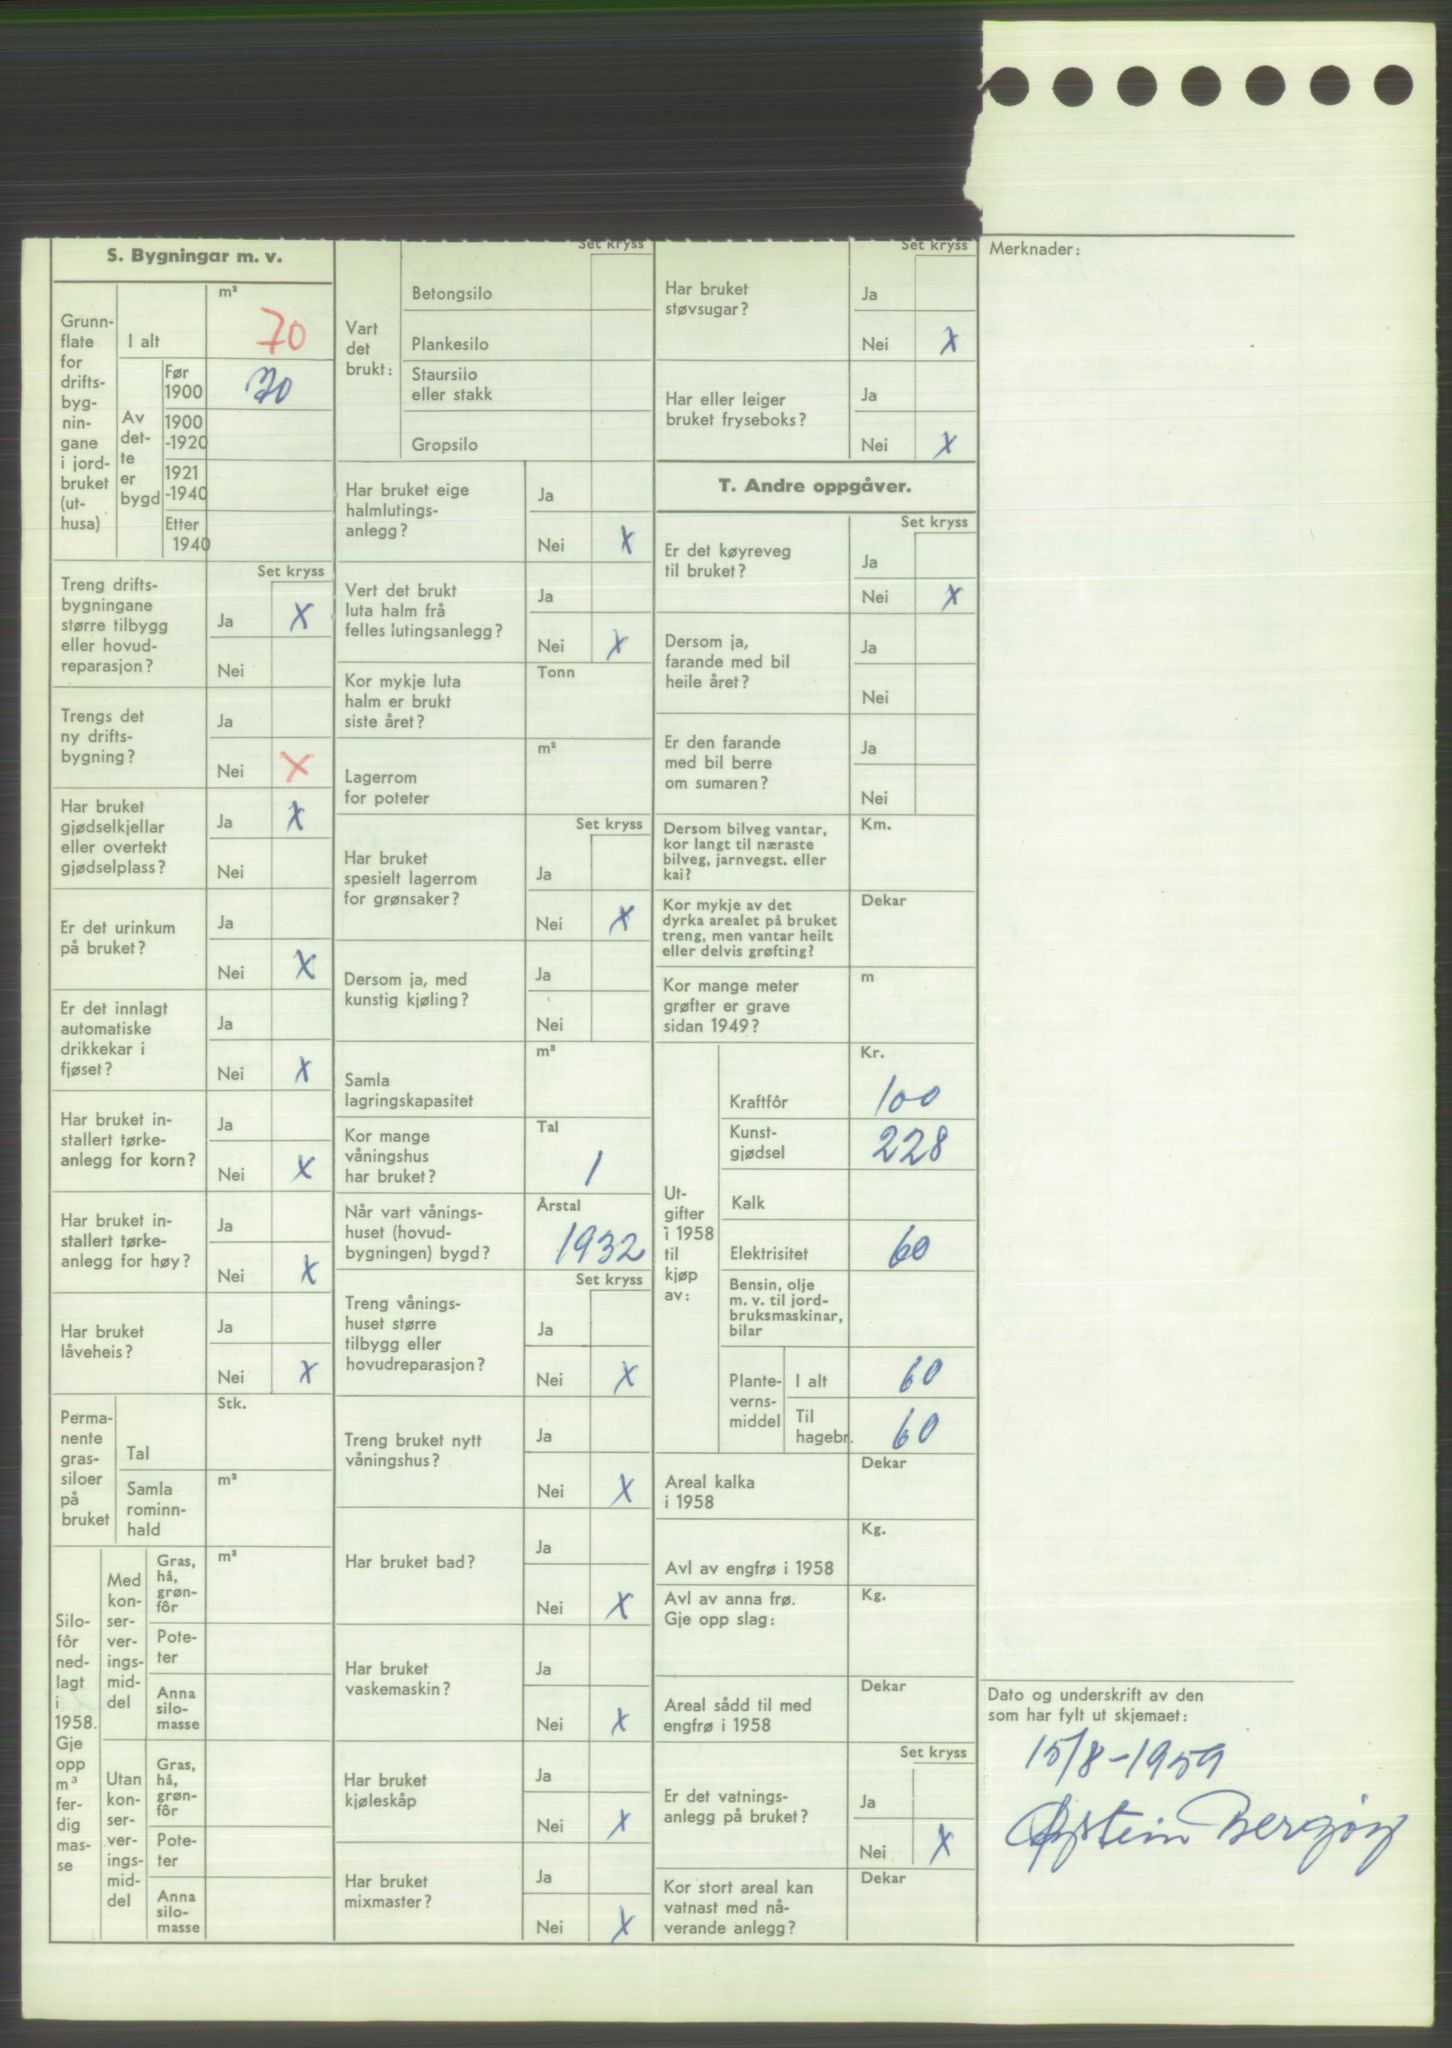 S. Bygningar m. v.
Grunn-
flate
for
drifts-
byg-
nin-
gane
i jord-
bruket
(ut-
husa)
m²
I alt
70
Av
det-
te
er
bygd
Før
1900
70
1900
-1920
1921
-1940
Etter
1940
Set kryss
Treng drifts-
bygningane
større tilbygg
eller hovud-
reparasjon?
Ja X
Nei
Trengs det
ny drifts-
bygning?
Ja
Nei X
Har bruket
gjødselkjellar
eller overtekt
gjødselplass?
Ja X
Nei
Er det urinkum
på bruket?
Ja
Nei X
Er det innlagt
automatiske
drikkekar i
fjøset?
Ja
Nei X
Har bruket in-
stallert tørke-
anlegg for korn?
Ja
Nei X
Har bruket in-
stallert tørke-
anlegg for høy?
Ja
Nei X
Har bruket
låveheis?
Ja
Nei X
Perma-
nente
gras-
siloer
på
bruket
Stk.
Tal
Samla
rominn-
hald
m³
Silo-
fôr
ned-
lagt
i
1958.
Gje
opp
m³
fer-
dig
mas-
se
Med
kon-
ser-
ver-
ings-
mid-
del
Gras,
hå,
grøn-
fôr
m³
Pote-
ter
Anna
silo-
masse
Utan
kon-
ser-
ver-
ings-
mid-
del
Gras,
hå,
grøn-
fôr
Pote-
ter
Anna
silo-
masse
Set kryss
Vart
det
brukt:
Betongsilo
Plankesilo
Staursilo
eller stakk
Gropsilo
Har bruket eige
halmlutings-
anlegg?
Ja
Nei X
Vert det brukt
luta halm frå
felles lutingsanlegg?
Ja
Nei X
Kor mykje luta
halm er brukt
siste året?
Tonn
Lagerrom
for poteter
m²
Set kryss
Har bruket
spesielt lagerrom
for grønsaker?
Ja
Nei X
Dersom ja, med
kunstig kjøling?
Ja
Nei
Samla
lagringskapasitet
m³
Kor mange
våningshus
har bruket?
Tal
1
Når vart vånings-
huset (hovud-
bygningen) bygd?
Årstal
1932
Set kryss
Treng vånings-
huset større
tilbygg eller
hovudreparasjon?
Ja
Nei X
Treng bruket nytt
våningshus?
Ja
Nei X
Har bruket bad?
Ja
Nei X
Har bruket
vaskemaskin?
Ja
Nei X
Har bruket
kjøleskåp
Ja
Nei X
Har bruket
mixmaster?
Ja
Nei X
Set kryss
Har bruket
støvsugar?
Ja
Nei X
Har eller leiger
bruket fryseboks?
Ja
Nei X
T. Andre oppgåver.
Set kryss
Er det køyreveg
til bruket?
Ja
Nei X
Dersom ja,
farande med bil
heile året?
Ja
Nei
Er den farande
med bil berre
om sumaren?
Ja
Nei
Dersom bilveg vantar,
kor langt til næraste
bilveg, jarnvegst. eller
kai?
Km.
Kor mykje av det
dyrka arealet på bruket
treng, men vantar heilt
eller delvis grøfting?
Dekar
Kor mange meter
grøfter er grave
sidan 1949?
m
Ut-
gifter
i 1958
til
kjøp
av:
Kr.
Kraftfôr 100
Kunst-
gjødsel 228
Kalk
Elektrisitet 60
Bensin, olje
m. v. til jord-
bruksmaskinar,
bilar
Plante-
verns-
middel
I alt 60
Til
hagebr. 60
Areal kalka
i 1958
Dekar
Avl av engfrø i 1958
Kg.
Avl av anna frø.
Gje opp slag:
Kg.
Areal sådd til med
engfrø i 1958
Dekar
Set kryss
Er det vatnings-
anlegg på bruket?
Ja
Nei X
Kor stort areal kan
vatnast med nå-
verande anlegg?
Dekar
Merknader:
Dato og underskrift av den
som har fylt ut skjemaet:
15/8-1959
Øystein